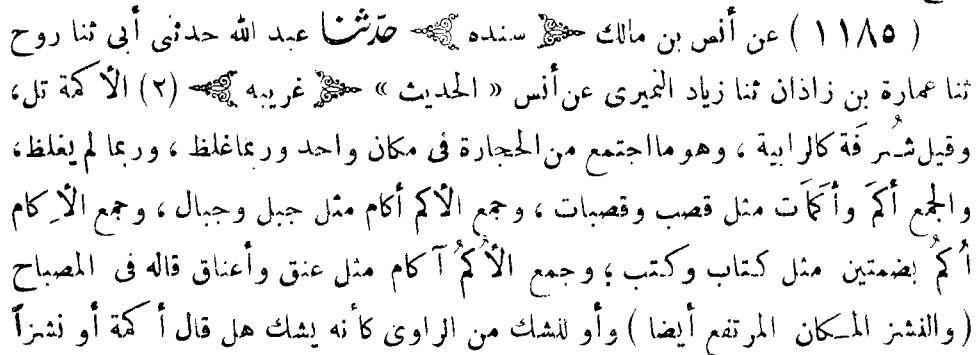 ( ١١٨٥ ) عن أنس بن مالك ﴿ سنده ﴾ حدّثنا عبد الله حدثنى أبى ثنا روح
ثنا عمارة بن زاذان ثنا زياد النميرى عن أنس « الحديث » ﴿ غريبه ﴾ (٢) الأكمة تل،
وقيل شُرفة كالرابية ، وهو ما اجتمع من الحجارة فى مكان واحد وربما غلظ ، وربما لم يغلظ،
والجمع أكَم وأكَمَات مثل قصب وقصبات ، وجمع الأكم أكام مثل جبل وجبال ، وجمع الأِكام
أُكُم بضمتين مثل كتاب وكتب ؛ وجمع الأُكُمُ آكام مثل عنق وأعناق قاله فى المصباح
(والنشز المكان المرتفع أيضا ) وأو للشك من الراوى كأنه يشك هل قال أكمة أو نشزاً